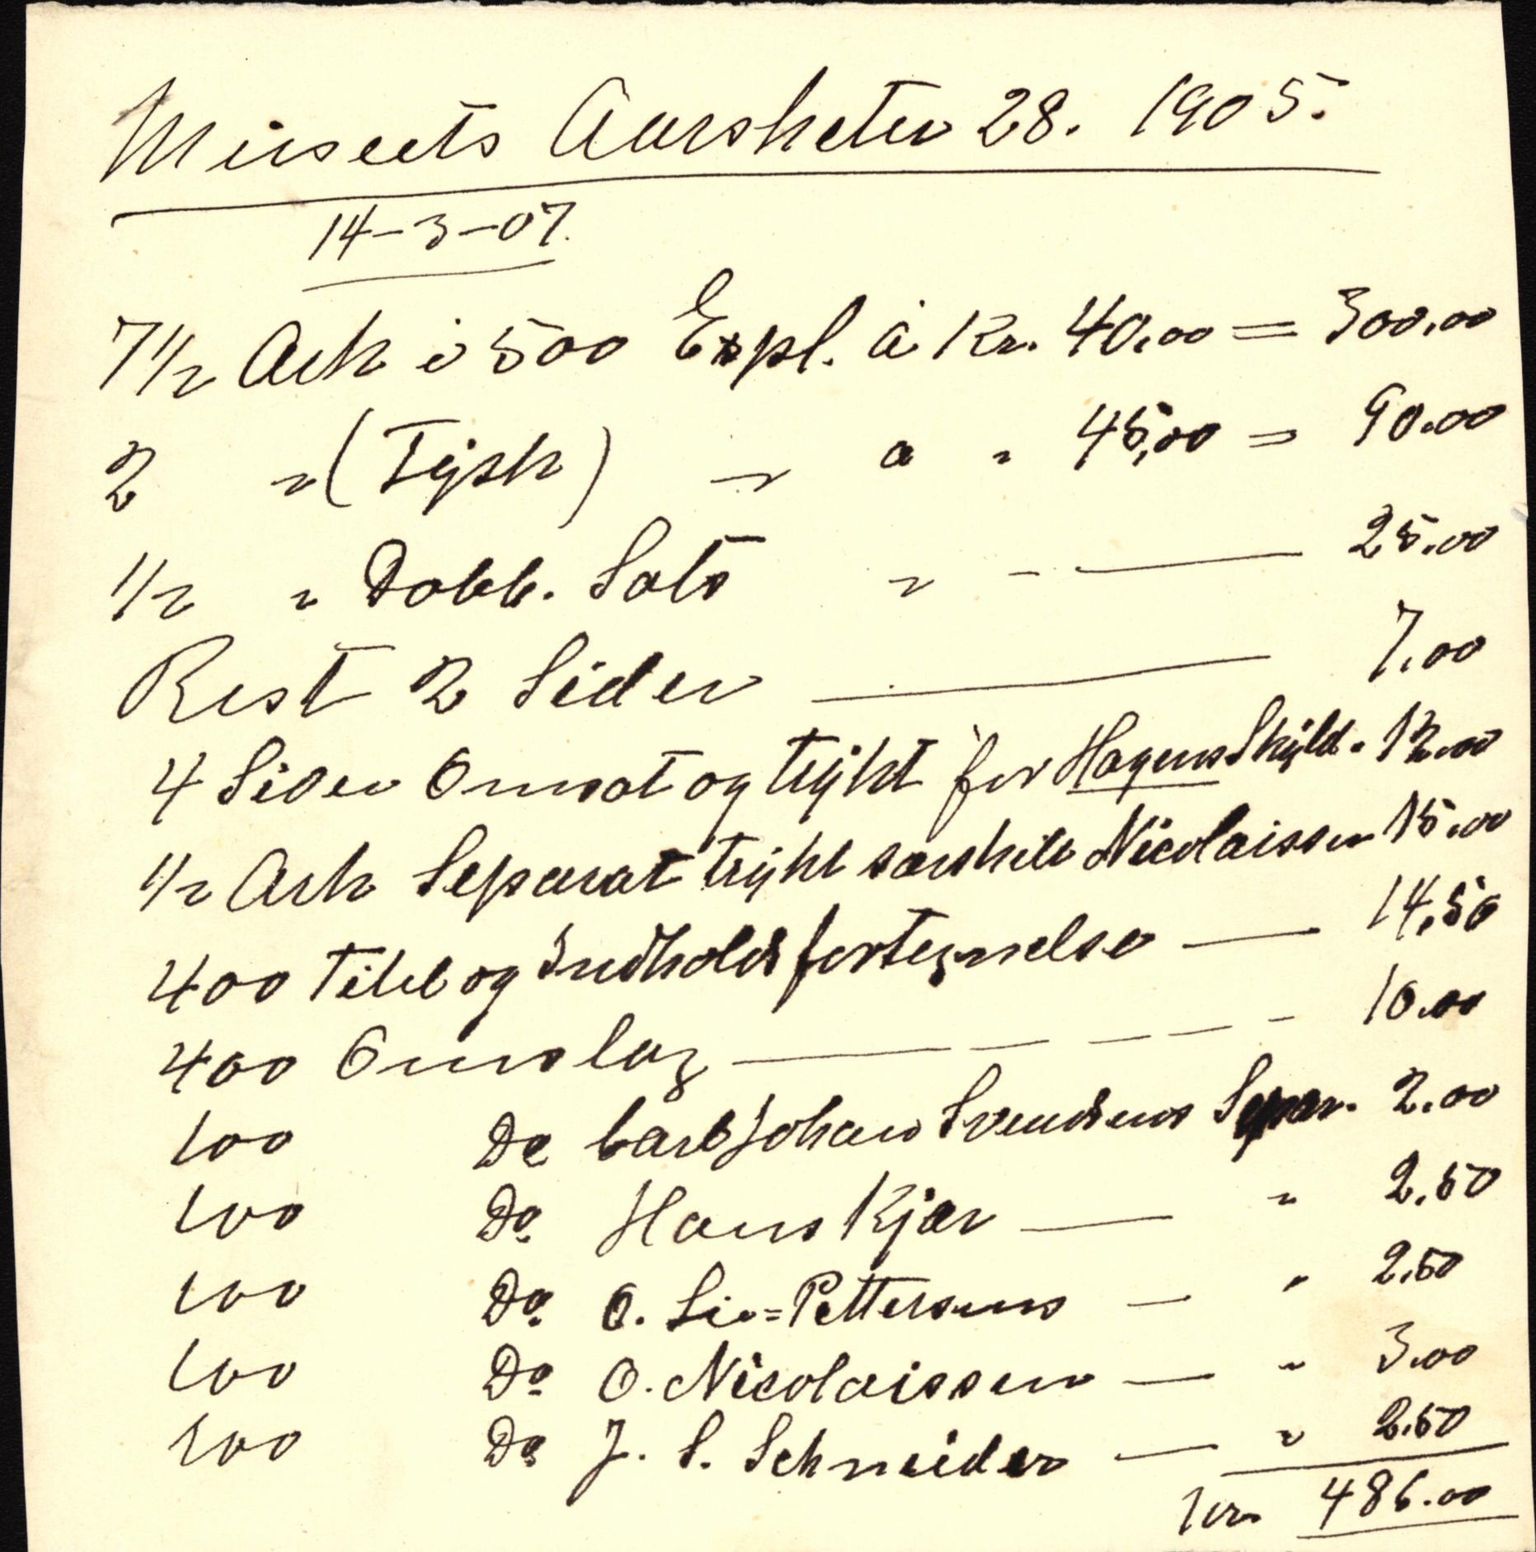 Museets Aarshefter 28. 1905.
14-3-07.
7 1/2 Ark i 500 Expl. à Kr. 40.00 = 300.00
2 " (Tysk) " a " 45,00 = 90.00
1/2 " Dobb. Sats " - — 25.00
Rest 2 Sider — 7.00
4 Sider Omsat og trykt for Hagens Skyld. 12.00
1/2 Ark Separat trykt særskilt Nicolaissen 15.00
400 Titel og Indholdsfortegnelse — 14.50
400 Omslag — - - - 10.00
100 Do Carl Johan Svendsens Separ. 2.00
100 Do Hans Kjær — " 2.50
100 Do O. Lie=Pettersens — " 2.50
100 Do O. Nicolaissen — " 3.00
100 Do J. S. Schneider — " 2.50
Kr. 486.00